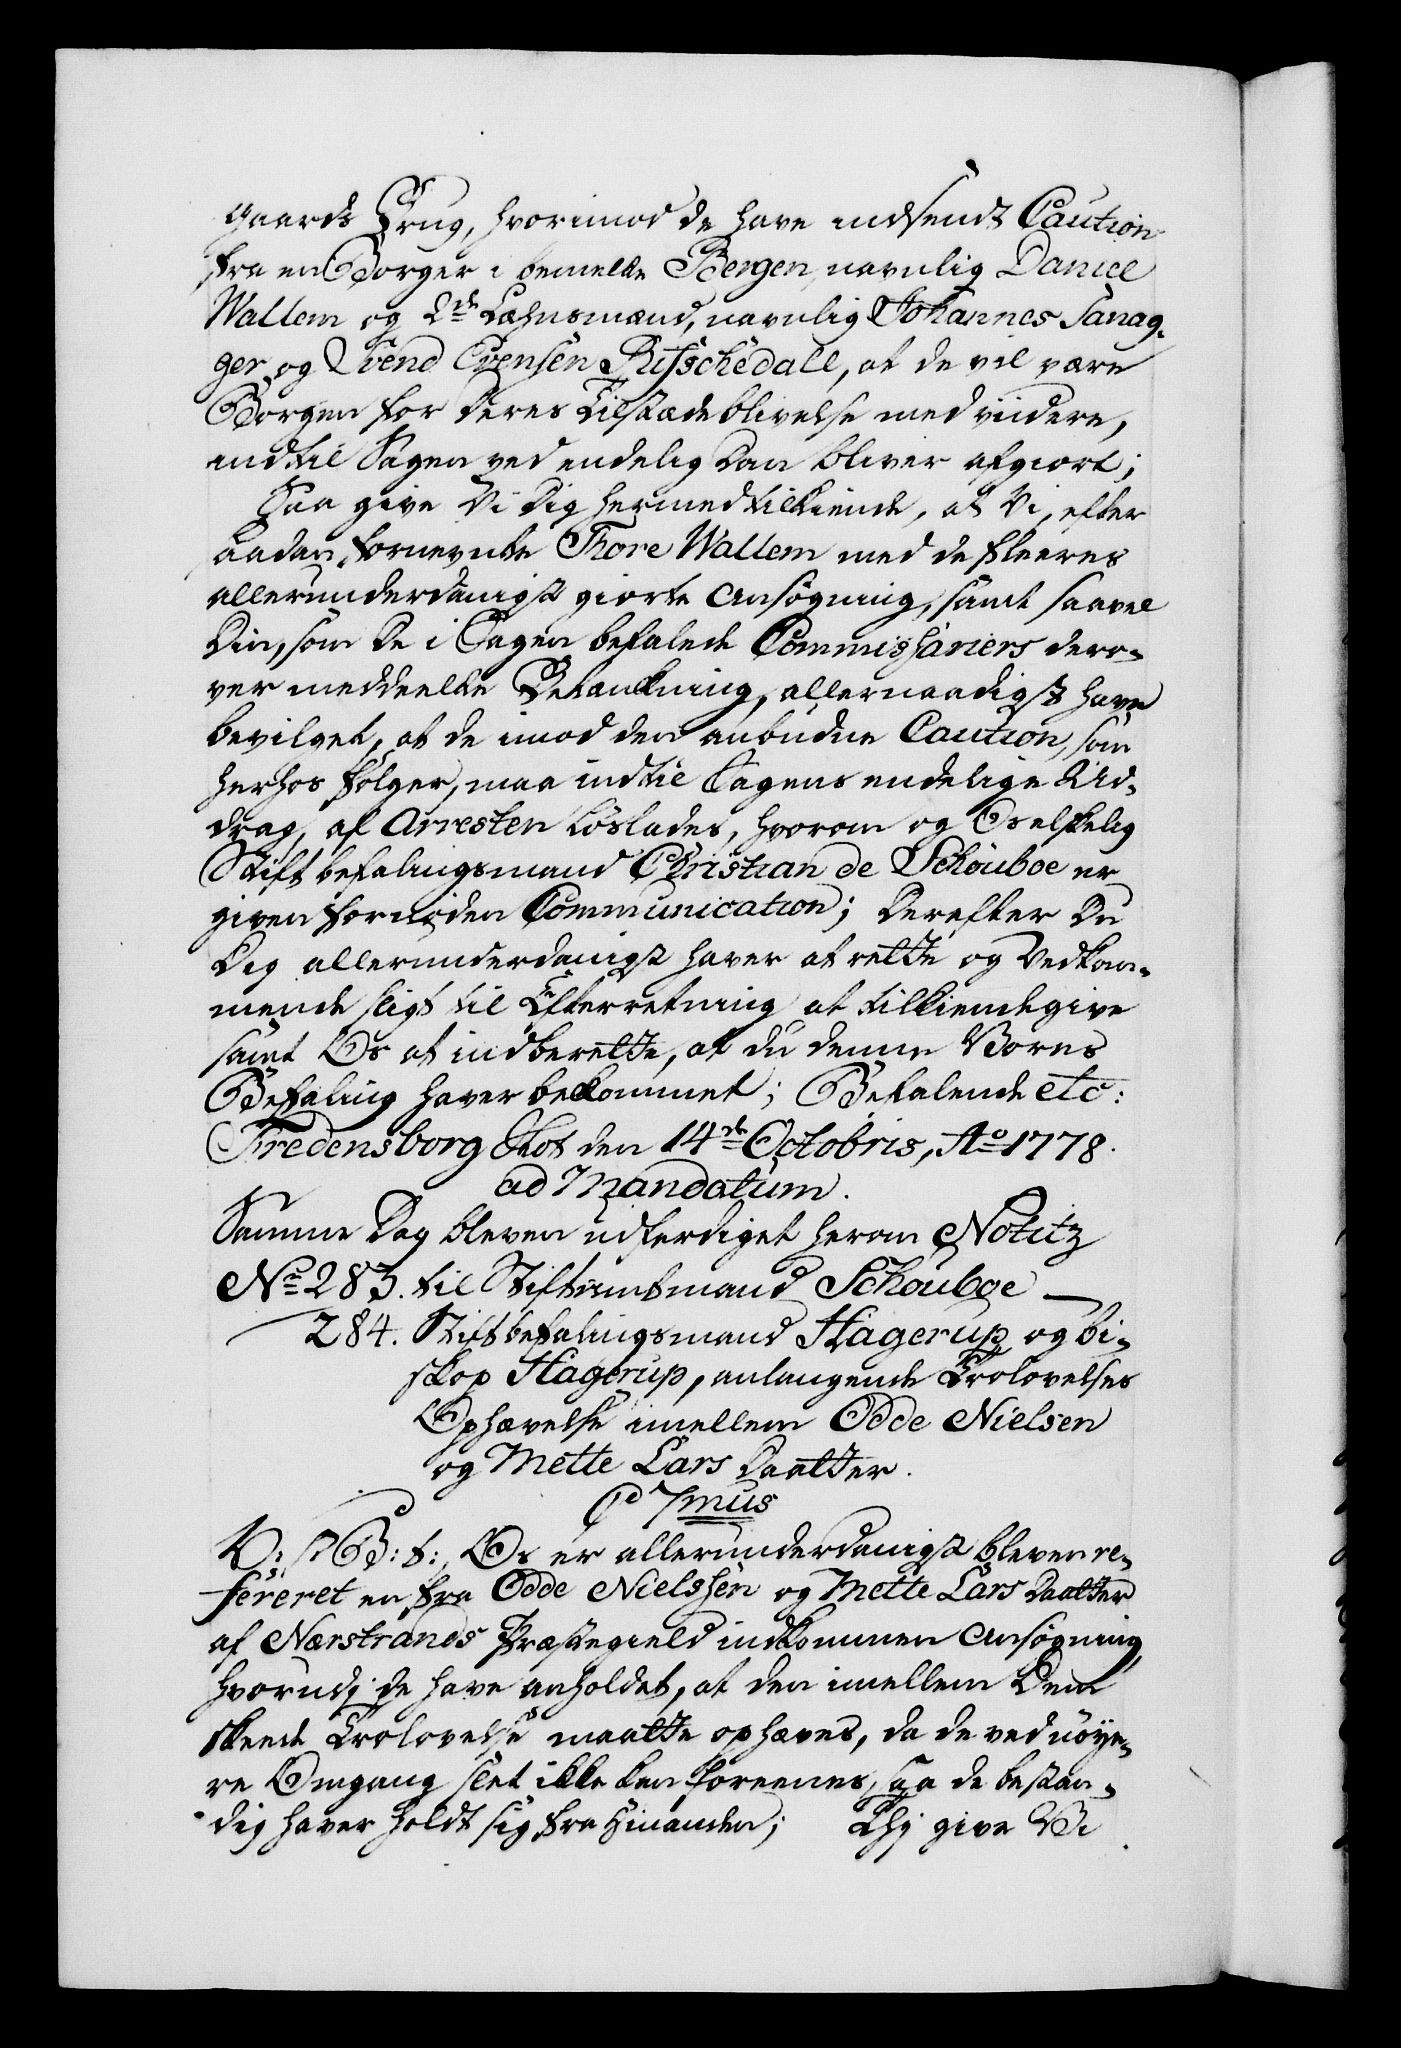 gaards Brug, hvorimod de have indsendt Caution
fra en Borger i bemelte Bergen, navnlig Daniel
Wallem og 2de Lehnsmænd, navnlig Johannes Sanag-
ger og Svend Evensen Rifschedall, at de vil være
Borgen for deres Tilstædeblivelse med viidere,
indtil Sagen ved endelig Dom bliver afgiort;
Saa give Vi Dig hermed tilkiende, at Vi, efter
saadan fornevnte Thore Wallem med de fleeres
allerunderdanigst giorte Ansøgning, samt saavel
Din, som de i Sagen befalede Commissariers dero-
ver meddeelte Betænkning, allernaadigst have
bevilget, at de imod den anbudne Caution, som
herhos følger, maa indtil Sagens endelige Ud-
drag, af Arresten løslades, hvorom og Os elskelig
Stiftbefalingsmand Christian de Schouboe er
given fornøden Communication; Derefter Du
Dig allerunderdanigst haver at rette og Vedkom-
mende sligt til Efterretning at tilkiendegive
samt Os at indberette, at du denne Vores
Befaling haver bekommet; Befalende etc:
Fredensborg Slot den 14de Octobris, Ao 1778.
ad Mandatum.
Samme Dag bleven udferdiget herom Notitz
No 283. til Stiftamtmand Schouboe
284. Stiftbefalingsmand Hagerup og Bi-
skop Hagerup, anlangende Trolovelses
Ophævelse imellem Odde Nielsen
og Mette Lars Daatter.
C 7mus
V: S: G: T:, Os er allerunderdanigst bleven re-
fereret en fra Odde Nielssen og Mette Lars Daatter
af Nærstrands Præstegield indkommen Ansøgning,
hvorudj de have anholdet, at den imellem Dem
skeede Trolovelse maatte ophæves, da de ved nøye-
re Omgang slet ikke kan foreenes, saa de bestan-
dig haver holdt sig fra hinanden; Thj give Vi